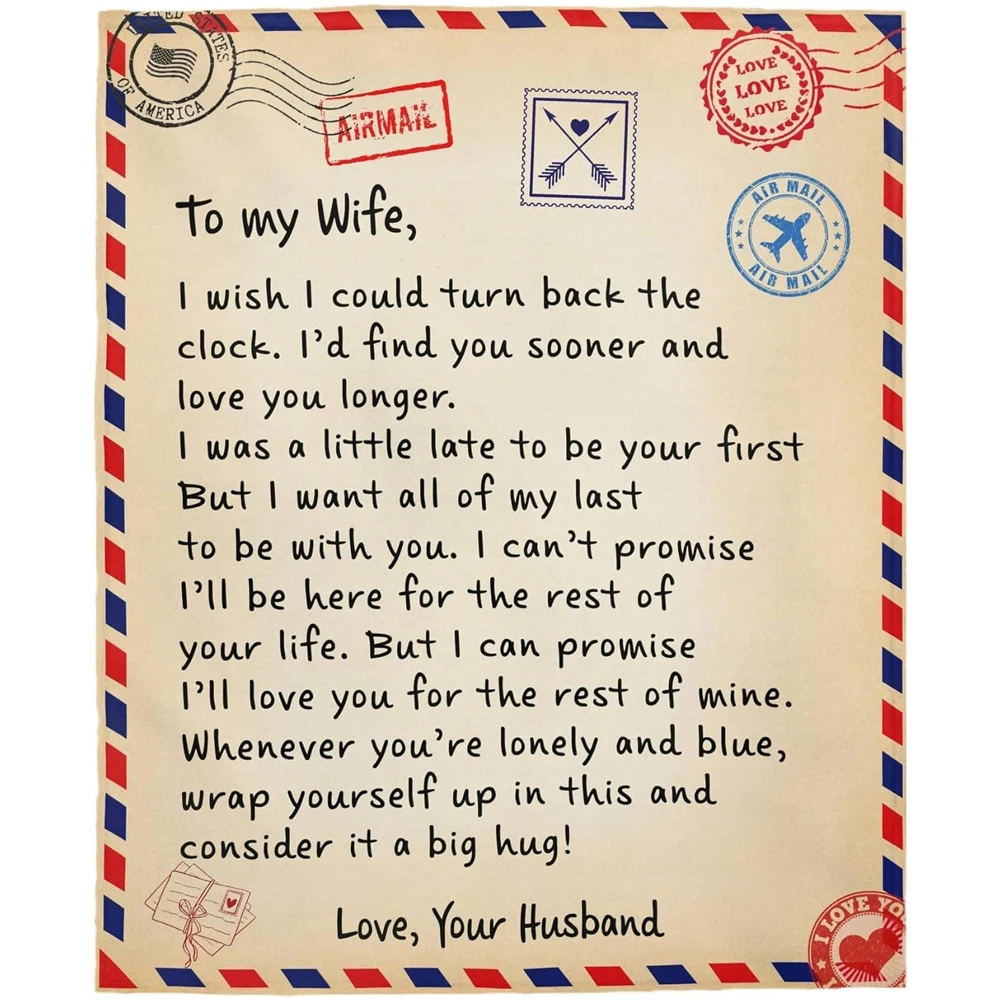 ED STATES
OF AMERICA
AIRMAIL
LOVE
LOVE
LOVE
AIR MAIL
AIR MAIL
To my Wife,
I wish I could turn back the
clock. I'd find you sooner and
love you longer.
I was a little late to be your first
But I want all of my last
to be with you. I can't promise
I'll be here for the rest of
your life. But I can promise
I'll love you for the rest of mine.
Whenever you're lonely and blue,
wrap yourself up in this and
consider it a big hug!
Love, Your Husband
I LOVE YO